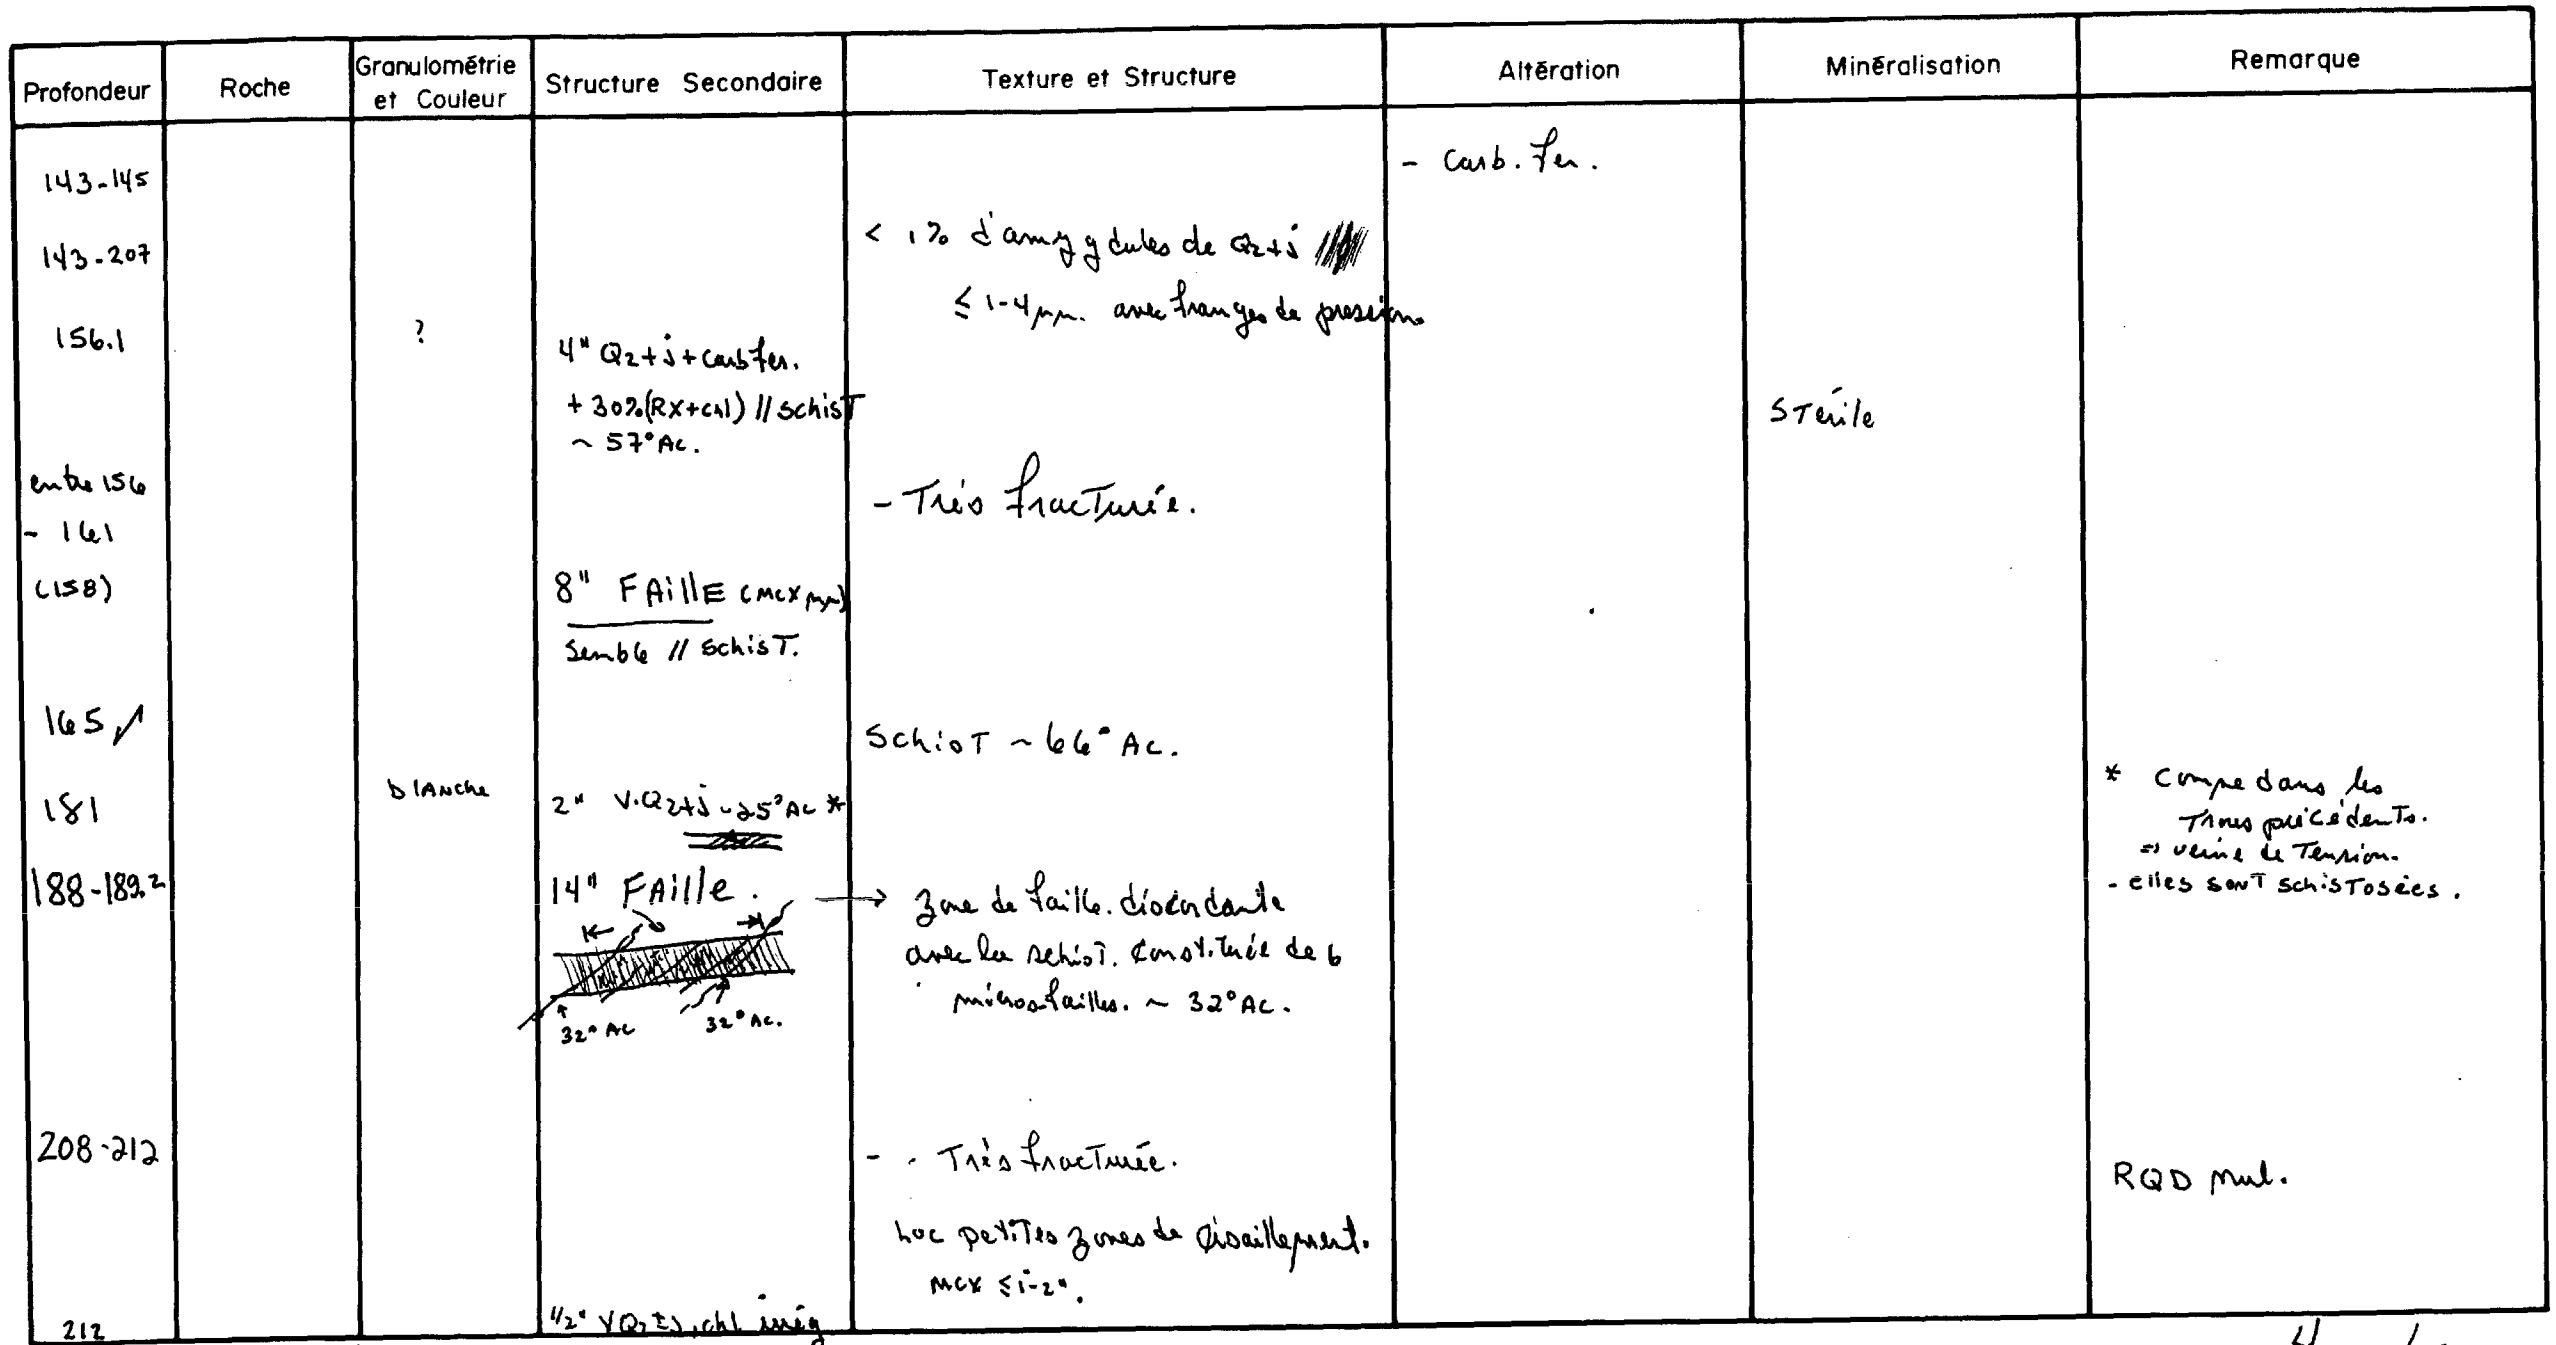 Profondeur Roche Granulométrie et Couleur Structure Secondaire Texture et Structure Altération Minéralisation Remarque
143-145 - Carb. fer.
143-207 < 1% d'amygdules de Qz+j
≤ 1-4 mm. avec franges de pression.
156.1 ? 4" Qz+j+carb fer.
+ 30%(RX+chl) // schisT STérile
~ 57° Ac.
entre 156
- 161 - Très fracTurée.
(158) 8" FAillE (mcx mm)
Semble // schisT.
165 SchisT ~ 66° Ac.
181 blAnche 2" V.Qz+j ~25° Ac * * Comme dans les
Trous précédenTs.
=> veine de Tension.
- elles sonT schisTosées.
188-189.2 14" FAille. → zone de faille. discordante
avec la schisT. ConsTituée de 6
microfailles. ~ 32° Ac.
32° Ac 32° Ac.
208-212 - Très fracTurée.
RQD nul.
Loc petiTes zones de cisaillement.
mcx ≤ 1-2".
212 1/2" VQz ±j, chl irrég